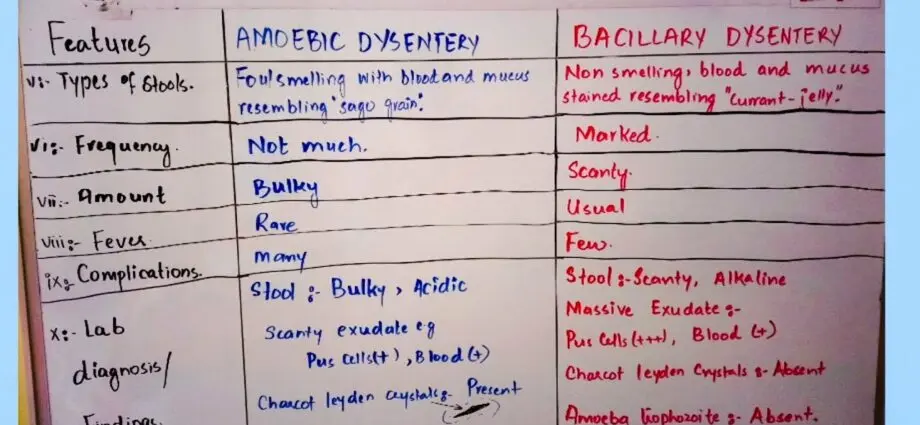 Features AMOEBIC DYSENTERY BACILLARY DYSENTERY
v:- Types of Stools. Foul smelling with blood and mucus resembling "sago grain". Non smelling, blood and mucus stained resembling "currant-jelly."
vi:- Frequency. Not much. Marked.
vii:- Amount Bulky Scanty.
viii:- Fever. Rare Usual
ix:- Complications. many Few.
x:- Lab diagnosis/ Findings
Stool :- Bulky, Acidic
Scanty exudate e.g
Pus cells(+), Blood(+)
Charcot leyden crystals :- Present
Stool :- Scanty, Alkaline
Massive Exudate :-
Pus Cells(+++), Blood (+)
Charcot leyden Crystals :- Absent
Amoeba trophozoite :- Absent.